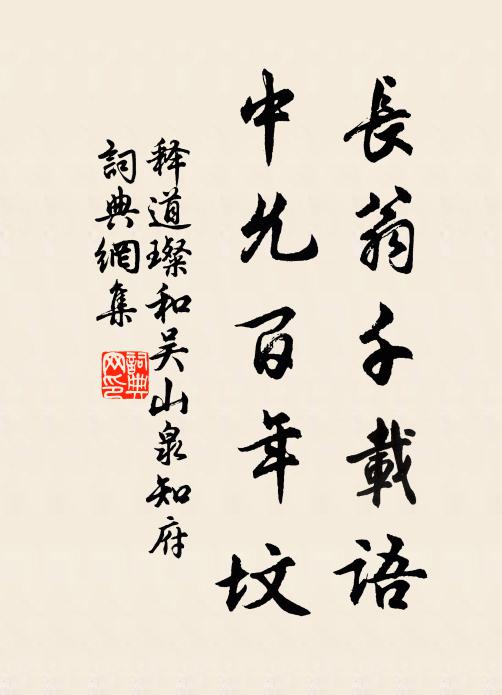 長翁千載語
中允百年坟
释道璨和吴山泉知府
詞典網集
詞典网印